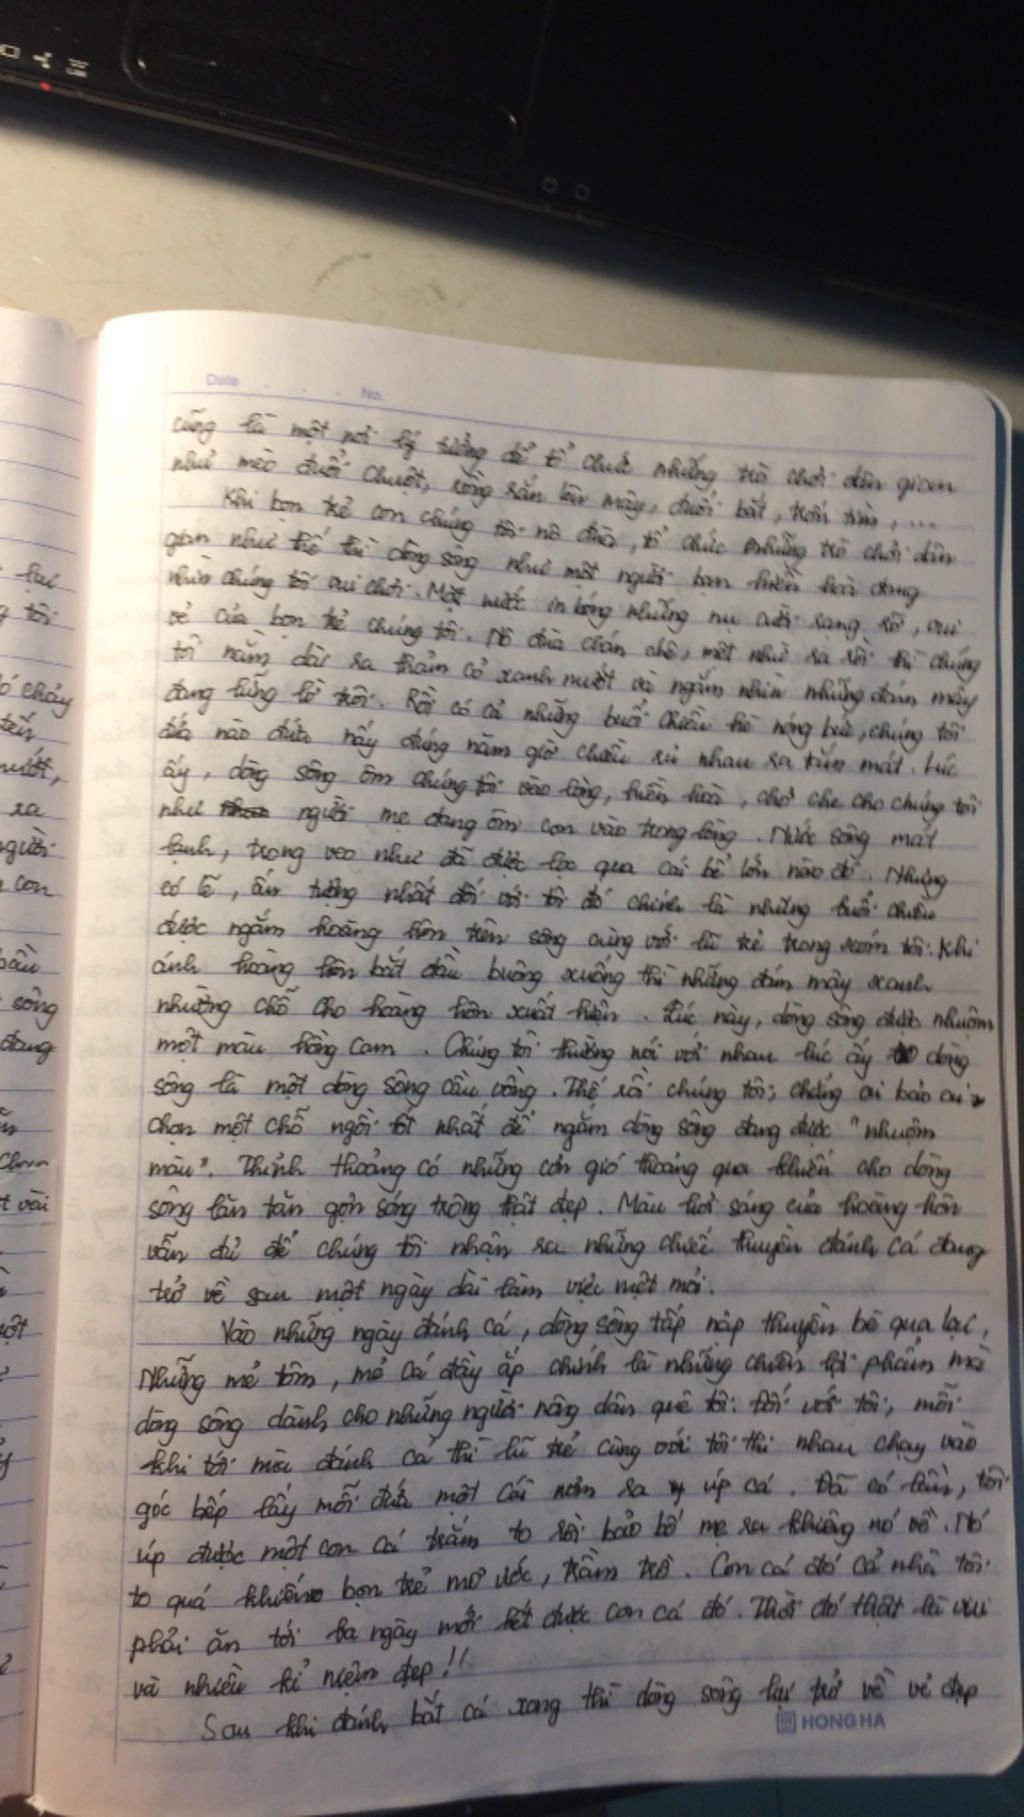 Date . . . No.
cũng là một nơi lý tưởng để tổ chức những trò chơi dân gian
như mèo đuổi chuột, rồng rắn lên mây, đuổi bắt, trốn tìm, ...
Khi bọn trẻ con chúng tôi nô đùa, tổ chức những trò chơi dân
gian như thế thì dòng sông như một người bạn hiền hoà đang
nhìn chúng tôi vui chơi. Mặt nước in bóng những nụ cười rạng rỡ, vui
vẻ của bọn trẻ chúng tôi. Nô đùa chán chê, mệt như rã rời thì chúng
tôi nằm dài ra thảm cỏ xanh mướt và ngắm nhìn những đám mây
đang lững lờ trôi. Rồi có cả những buổi chiều hè nóng bức, chúng tôi
đứa nào đứa nấy đúng năm giờ chiều rủ nhau ra tắm mát. Lúc
ấy, dòng sông ôm chúng tôi vào lòng, hiền hoà, chở che cho chúng tôi
như người mẹ đang ôm con vào trong lòng. Nước sông mát
lạnh, trong veo như đã được lọc qua cái bể lớn nào đó. Nhưng
có lẽ, ấn tượng nhất đối với tôi đó chính là những buổi chiều
được ngắm hoàng hôn trên sông cùng với lũ trẻ trong xóm tôi. Khi
ánh hoàng hôn bắt đầu buông xuống thì những đám mây xanh
nhường chỗ cho hoàng hôn xuất hiện. Lúc này, dòng sông được nhuộm
một màu hồng cam. Chúng tôi thường nói với nhau lúc ấy dòng
sông là một dòng sông cầu vồng. Thế rồi chúng tôi, chẳng ai bảo ai
chọn một chỗ ngồi tốt nhất để ngắm dòng sông đang được "nhuộm
màu". Thỉnh thoảng có những cơn gió thoảng qua khiến cho dòng
sông lăn tăn gợn sóng trông thật đẹp. Màu tươi sáng của hoàng hôn
vẫn đủ để chúng tôi nhận ra những chiếc thuyền đánh cá đang
trở về sau một ngày dài làm việc mệt mỏi.
Vào những ngày đánh cá, dòng sông tấp nập thuyền bè qua lại,
Những mẻ tôm, mẻ cá đầy ắp chính là những chiến lợi phẩm mà
dòng sông dành cho những người nông dân quê tôi. Đối với tôi, mỗi
khi tới mùa đánh cá thì lũ trẻ cùng với tôi thi nhau chạy vào
góc bếp lấy mỗi đứa một cái nơm ra úp cá. Đã có lần, tôi
úp được một con cá trắm to rồi bảo bố mẹ ra khiêng nó về. Nó
to quá khiến bọn trẻ mơ ước, trầm trồ. Con cá đó cả nhà tôi
phải ăn tới ba ngày mới hết được con cá đó. Thời đó thật là vui
và nhiều kỉ niệm đẹp!!
Sau khi đánh bắt cá xong thì dòng sông lại trở về vẻ đẹp
HONG HA
lại
tôi
chảy
mướt,
ra
người
con
sông
đang